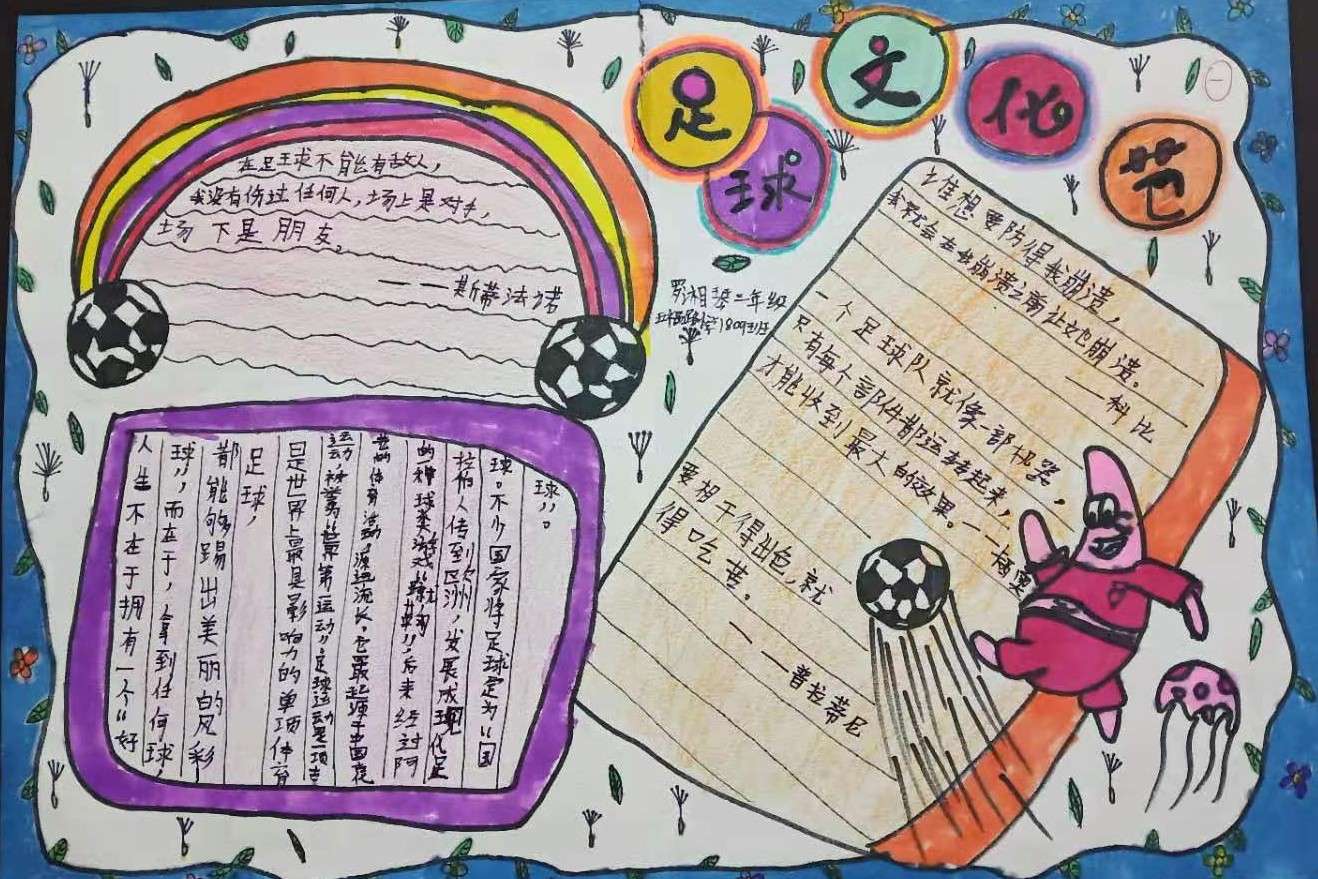 足球文化节
一
在足球不能有敌人,
我没有伤过任何人,场上是对手,
场下是朋友。
——斯蒂法诺
二年级
1809班
谁想要防得我崩溃,
我就会在我崩溃之前让他崩溃。
——科比
一个足球队就像一部机器,
只有每个部件都运转起来,
才能收到最大的效果。——
要想干得出色,就
得吃苦。
——普拉蒂尼
人生不在于拥有一个“好
球”,而在于,拿到任何球,
都能够踢出美丽的风彩
足球,
是世界上最具影响力的单项体育
运动,称誉“世界第一运动”足球运动是一项古
老的体育活动 源远流长。它最起源于中国
的种球类游戏“蹴鞠”,后来经过阿
拉伯人传到欧洲,发展成现代足
球。不少国家将足球定为“国
球”。